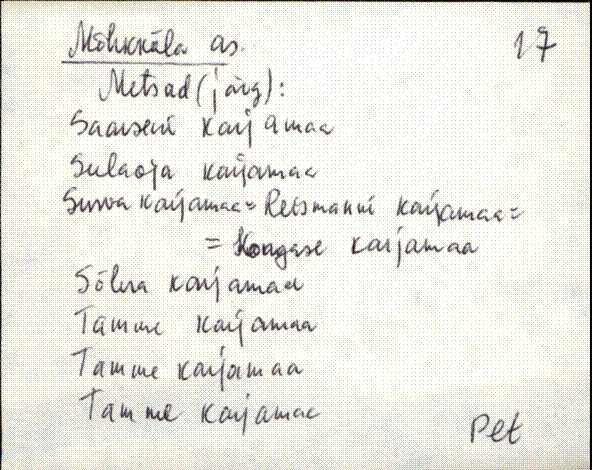 Mõhkküla as. 17
Metsad (järg):
Saarseni karjamaa
Sulaoja karjamaa
karjamaa = Reismanni karjamaa =
= Kongase karjamaa
Sõlna karjamaa
Tamme karjamaa
Tamme karjamaa
Tamme karjamaa
Pet